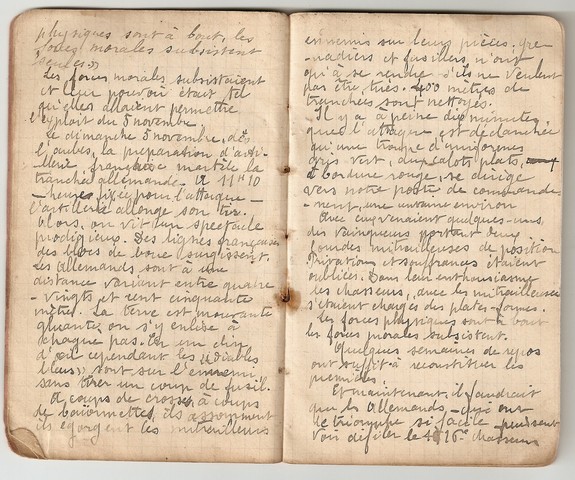 physiques sont à bout, les
forces morales subsistent
seules »
Les forces morales subsistaient
et leur pouvoir était tel
qu'elles allaient permettre
l'exploit du 5 novembre.
Le dimanche 5 novembre, dès
l'aube, la préparation d'artil-
lerie française martèle la
tranchée allemande. A 11h10
- heure fixée pour l'attaque -
l'artillerie allonge son tir.
Alors, on vit un spectacle
prodigieux. Des lignes françaises
des blocs de boue surgissent.
Les Allemands sont à une
distance variant entre quatre
- vingts et cent cinquante
mètres. La terre est mouvante
gluante, on s'y enlise à
chaque pas. En un clin
d'œil cependant les « diables
bleus » sont sur l'ennemi
sans tirer un coup de fusil.
A coups de crosses, à coups
de baïonnettes, ils assomment
ils égorgent les mitrailleurs
ennemis sur leurs pièces; gre-
nadiers et fusillers, n'ont
qu'à se rendre s'ils ne veulent
pas être tués. 400 mètres de
tranchées sont nettoyés.
Il y a à peine dix minutes
que l'attaque est déclanchée
qu'une troupe d'uniformes
gris vert, aux calots plats,
à bordure rouge, se dirige
vers notre poste de commande
- ment, une centaine environ
Avec eux venaient quelques-uns
des vainqueurs portant deux
lourdes mitrailleuses de position
Privations et souffrances étaient
oubliées. Dans leur enthousiasme
les chasseurs, avec les mitrailleuses
s'étaient chargés des plates-formes.
Les forces physiques sont à bout
les forces morales subsistent.
Quelques semaines de repos
ont suffit à reconstituer les
premières
Et maintenant, il faudrait
que les Allemands - qui ont
le triomphe si facile - puissent
voir défiler le 16e chasseurs